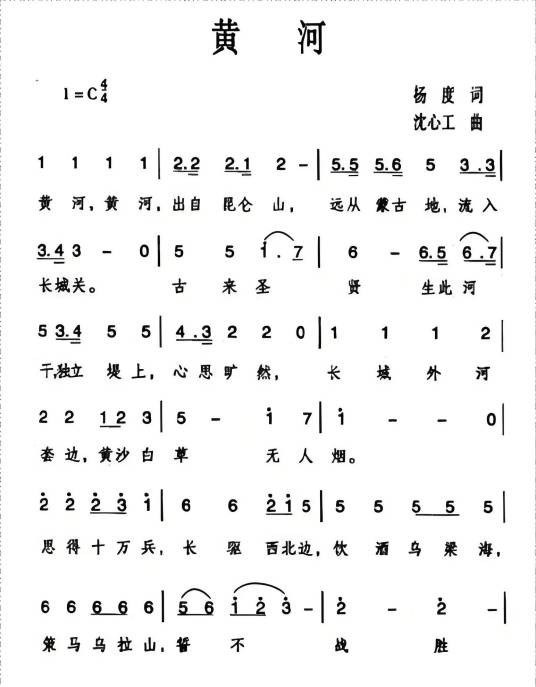 黄 河
1=C 4/4
杨 度 词
沈心工 曲
1 1 1 1 | 2.2 2.1 2 - | 5.5 5.6 5 3.3 |
黄 河, 黄 河, 出自 昆仑 山, 远从 蒙古 地, 流入
3.4 3 - 0 | 5 5 i . 7 | 6 - 6.5 6.7 |
长城关。 古 来 圣 贤 生此 河
5 3.4 5 5 | 4.3 2 2 0 | 1 1 1 2 |
干,独立 堤 上, 心 思 旷 然, 长 城 外 河
2 2 1 2 3 | 5 - i 7 | i - - 0 |
套 边, 黄 沙 白 草 无 人 烟。
2̇ 2̇ 2̇ 3̇ i | 6 6 2̇ i 5 | 5 5 5 5 5 |
思 得 十 万 兵, 长 驱 西北 边, 饮 酒 乌 梁 海,
6 6 6 6 6 | 5 6 i 2̇ 3̇ | - 2̇ - 2̇ |
策 马 乌 拉 山, 誓 不 战 胜